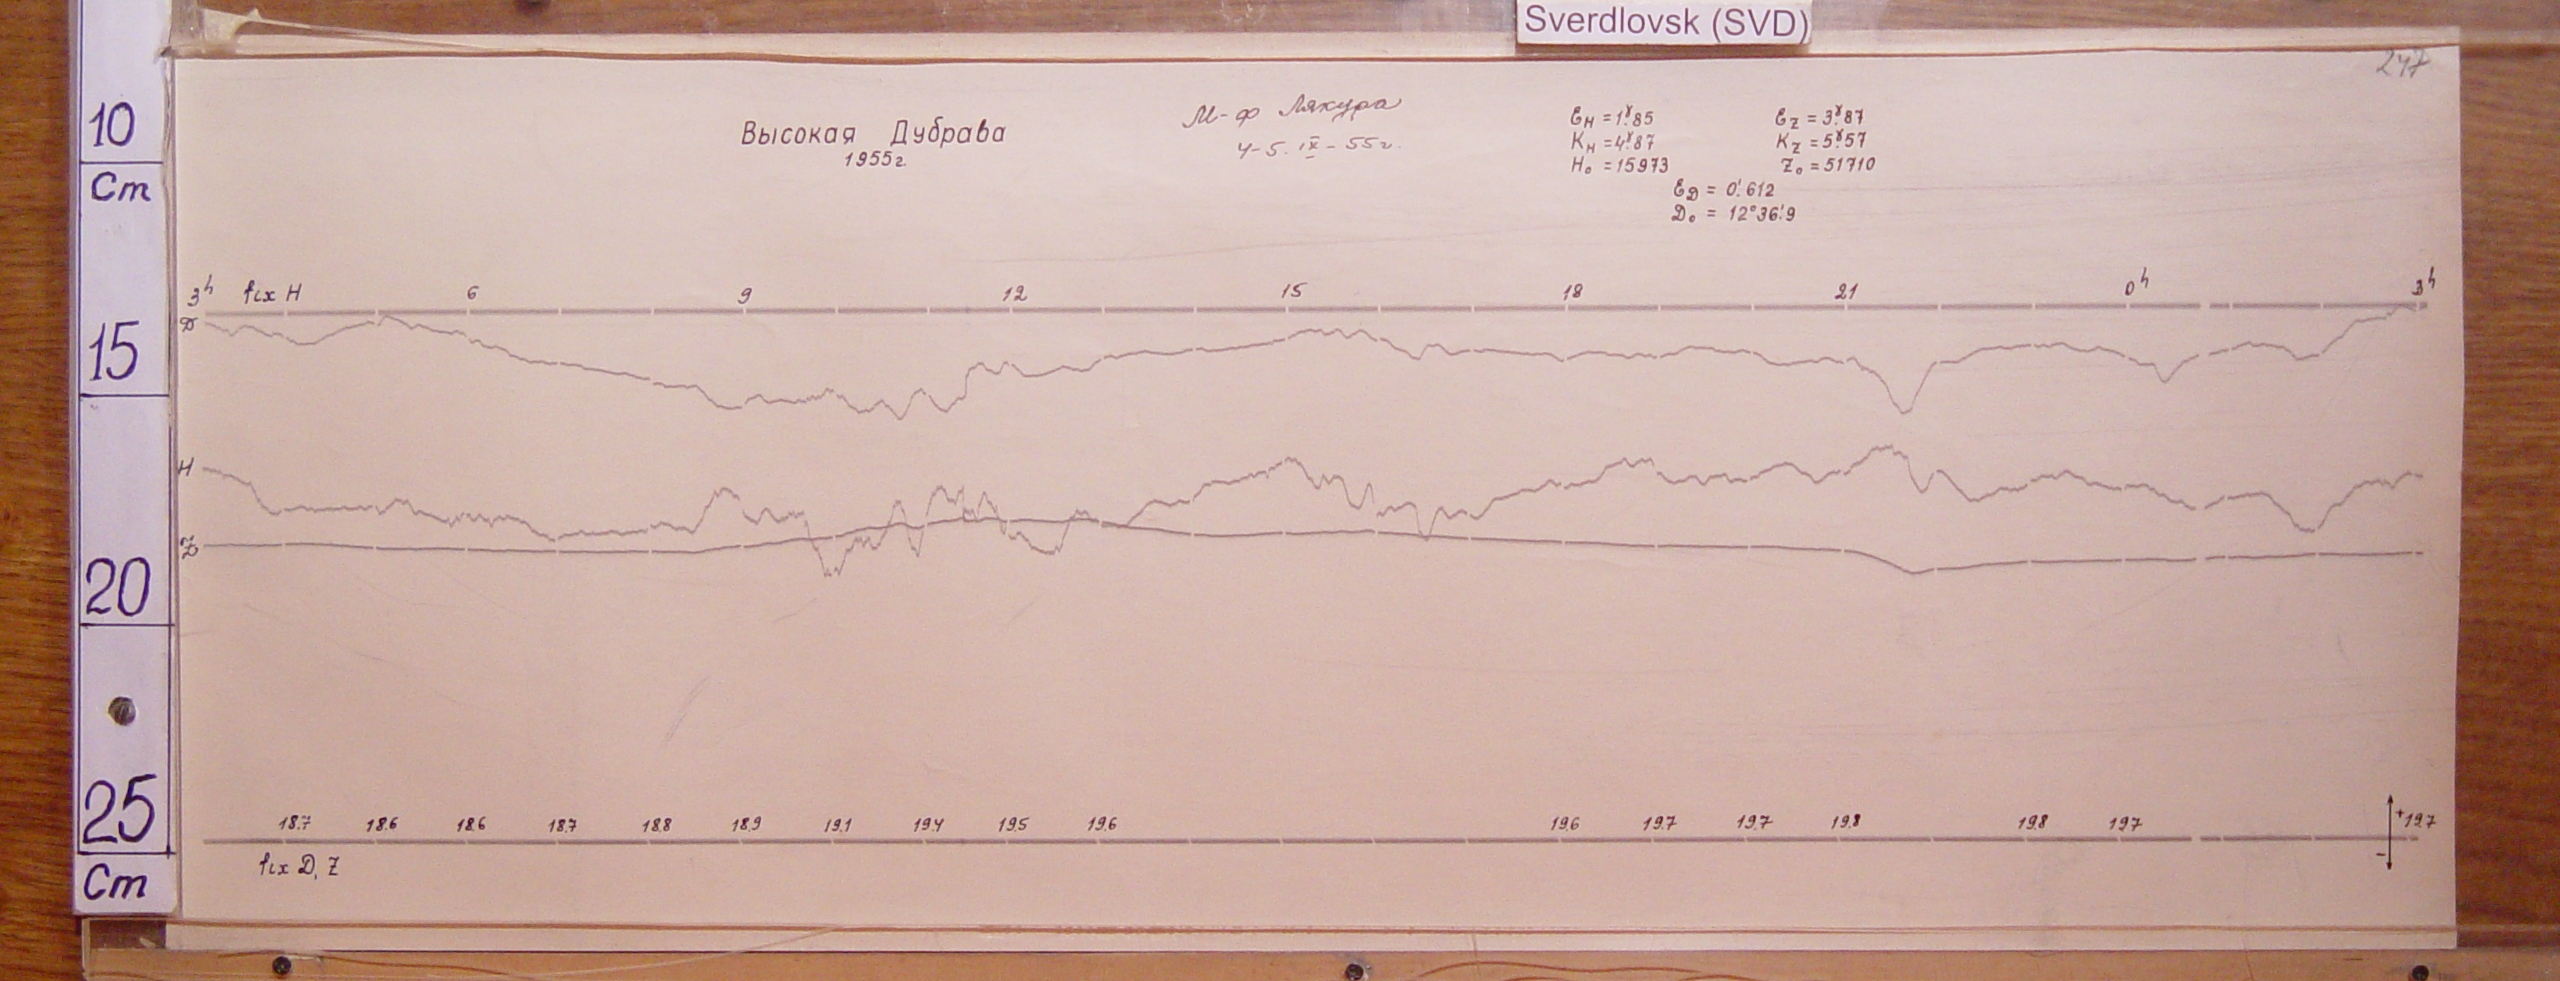 Sverdlovsk (SVD)
247
10
Cm
15
20
25
Cm
Высокая Дубрава
1955г.
М-ф Лякура
4-5. IX - 55г.
Ɛн = 1ˠ.85
Kн = 4ˠ.87
H₀ = 15973
Ɛz = 3ˠ.87
Kz = 5ˠ.57
Z₀ = 51710
ƐД = 0'.612
Д₀ = 12°36'.9
3ʰ fix H 6 9 12 15 18 21 0ʰ 3ʰ
Д
H
Z
18.7 18.6 18.6 18.7 18.8 18.9 19.1 19.4 19.5 19.6 19.6 19.7 19.7 19.8 19.8 19.7 + 19.7
-
fix Д, Z